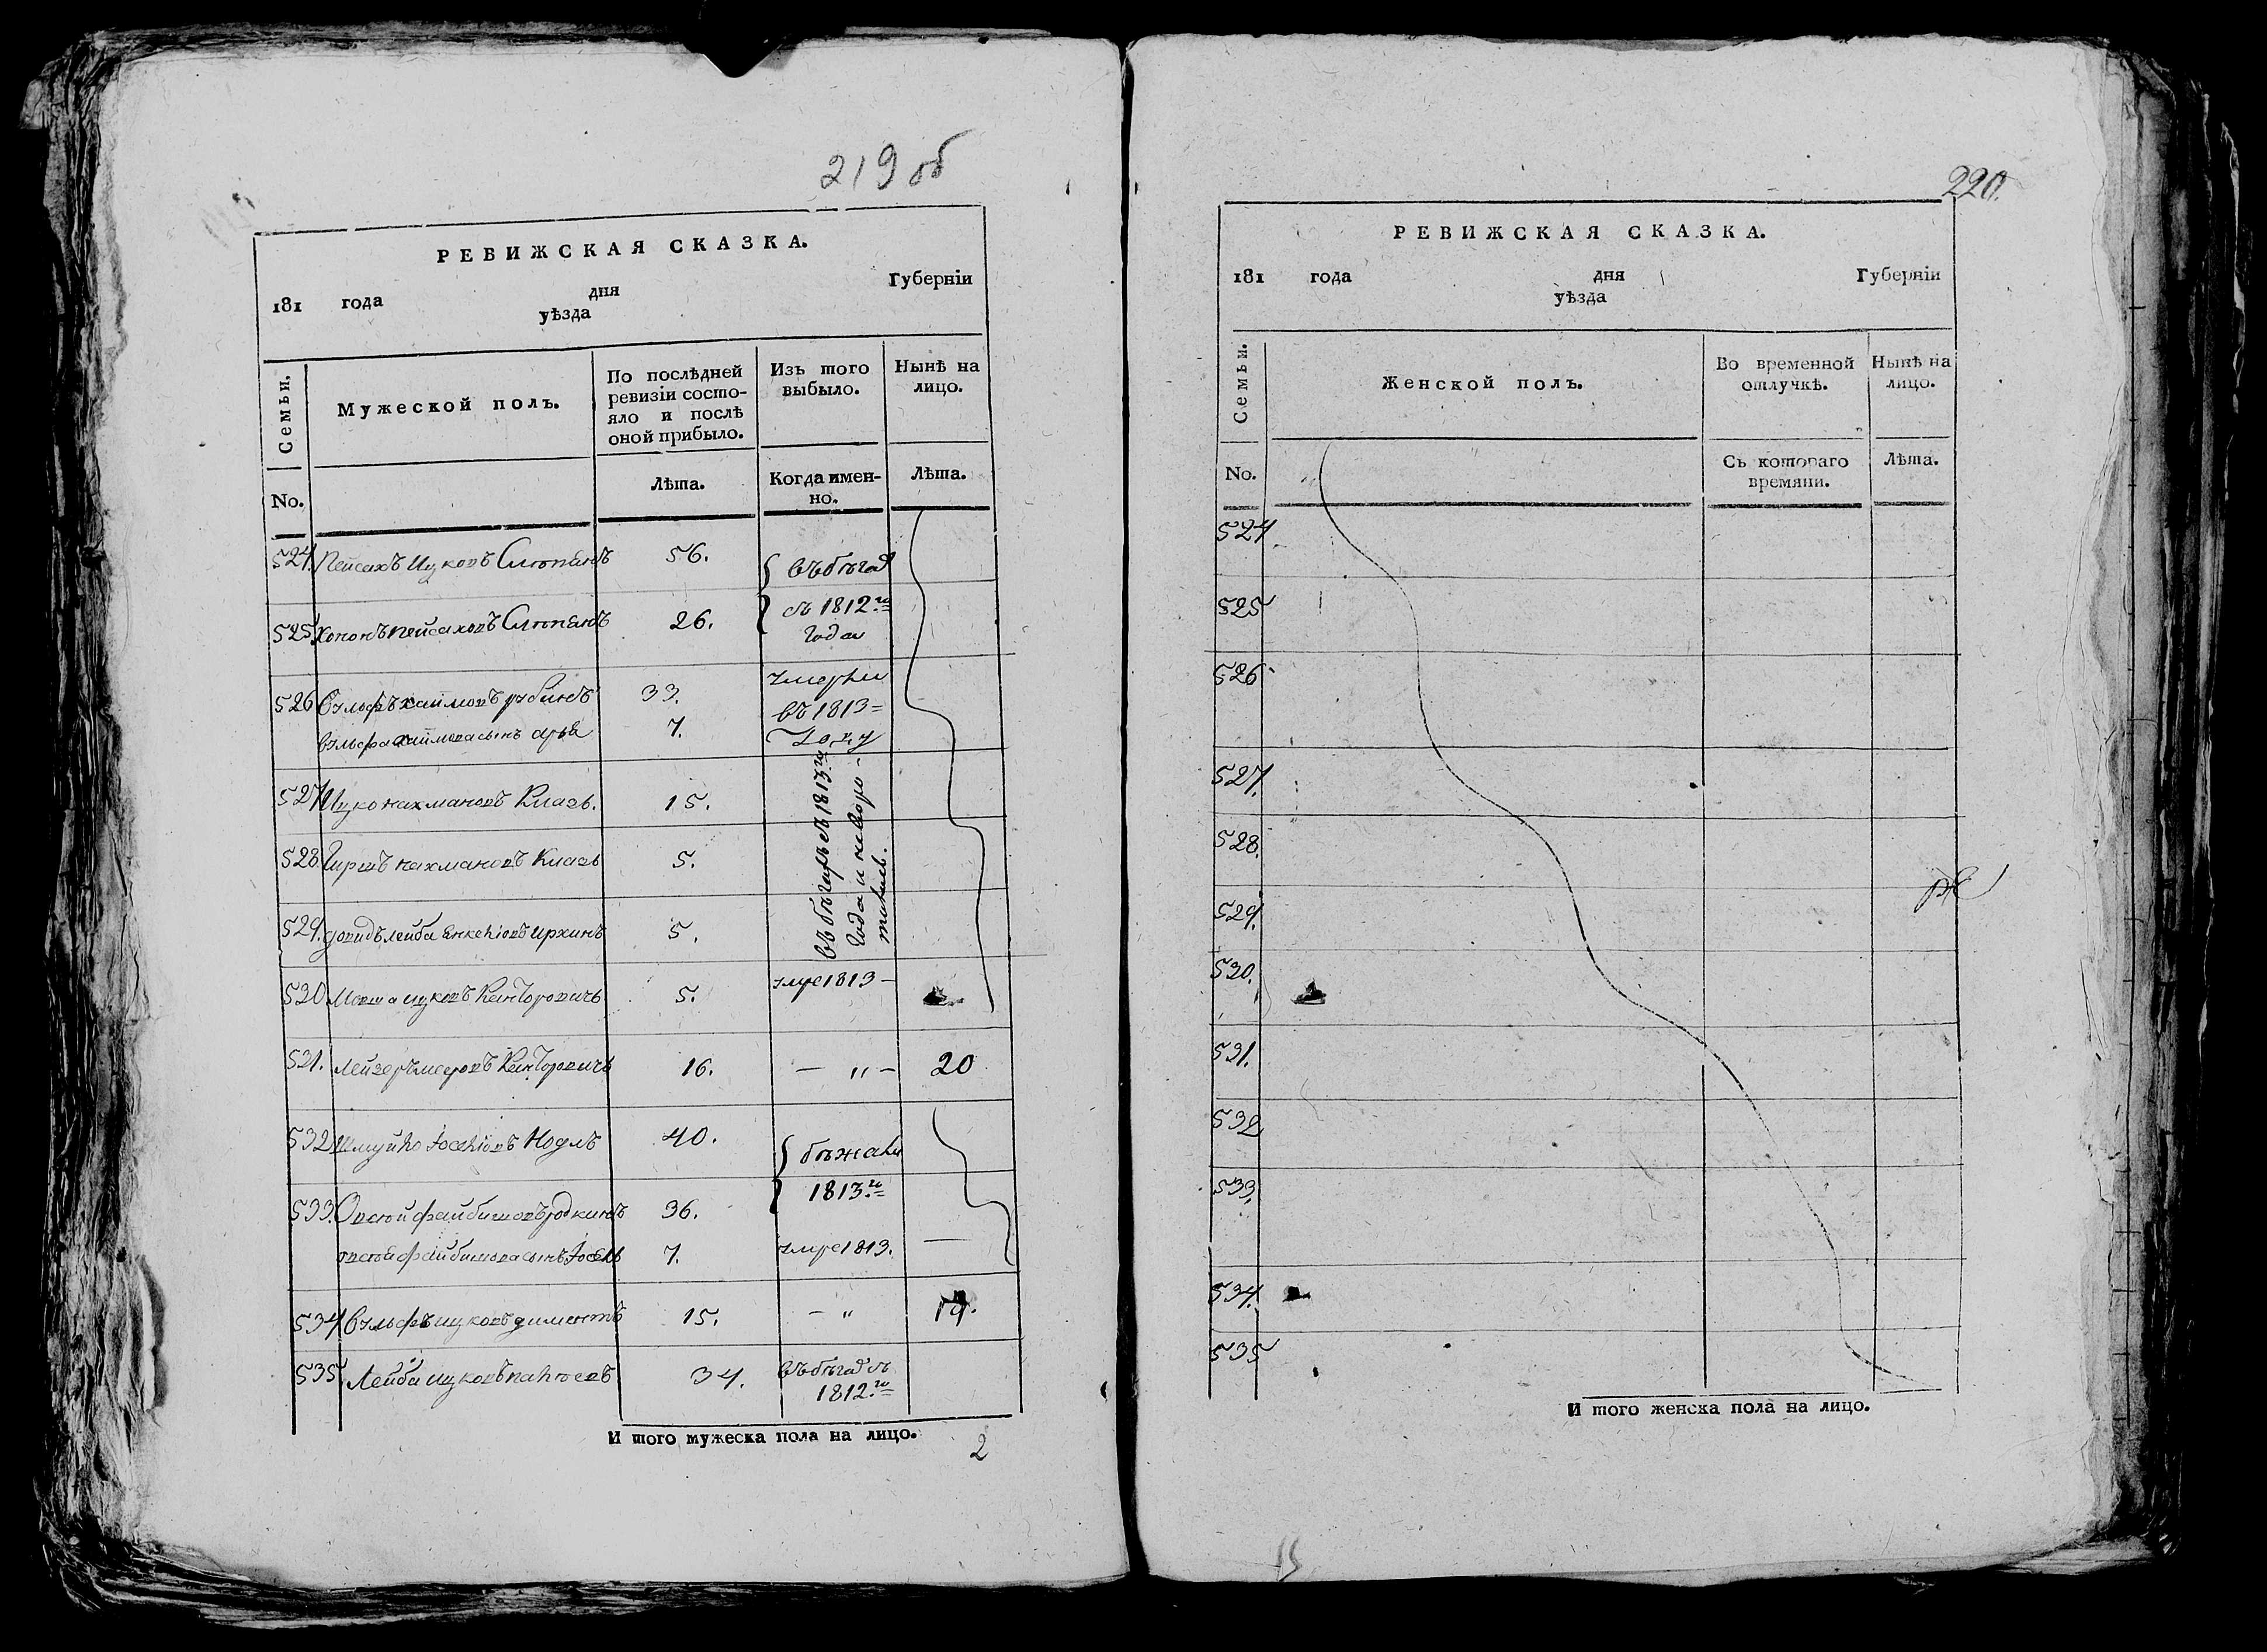 219 об
РЕВИЖСКАЯ СКАЗКА.
181 года дня Губерніи
уѣзда
Семьи.
Мужеской полъ.
По послѣдней ревизіи состояло и послѣ оной прибыло.
Изъ того выбыло.
Нынѣ на лицо.
No.
Лѣта.
Когда имен-
но.
Лѣта.
524. Пейсахъ Ицковъ 56. въ бѣгах
525. Хононъ Пейсаховъ 26. съ 1812го
года
526 Вульфъ Хаимовъ Рубинъ 33. умерли
въ 1813=
Вульфа Хаймова сынъ Арья 7. году
527 Ицко Нахмановъ 15. въ бѣгахъ съ 1813го
года и неворо-
тились.
528. Гиршъ Нахмановъ 5.
529. Довидъ Лейба 5.
530 Мовша Ицковъ Канторовичъ 5. уме 1813 —
531. Лейзеръ Меровъ Канторовичъ 16. — „ — 20
532 Шмуйло 40. бѣжали
533. Овсей Файбишовъ 36. 1813го
Овсея Файбишова сынъ 7. умре 1813. —
534 Вульфъ Ицковъ Диментъ 15. — „
535. Лейба Ицковъ 34. въ бѣгах съ
1812го
И того мужеска пола на лицо.
2
220.
РЕВИЖСКАЯ СКАЗКА.
181 года дня Губерніи
уѣзда
Семьи.
Женской полъ.
Во временной отлучкѣ.
Нынѣ на лицо.
No.
Съ котораго времяни.
Лѣта.
524.
525
526
527.
528.
529.
530.
531.
532
533.
534.
535
И того женска пола на лицо.